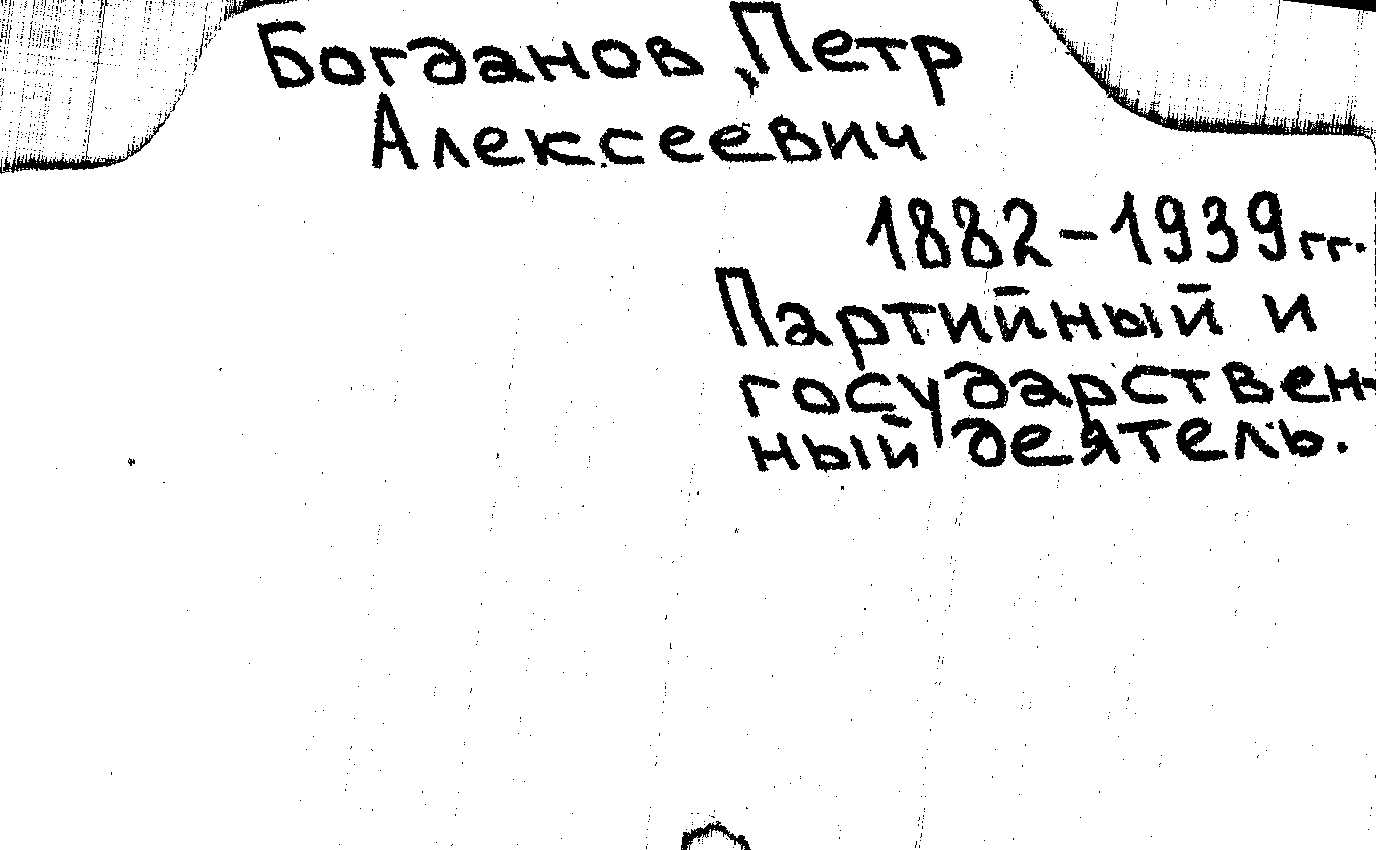 Богданов, Петр
Алексеевич
1882-1939гг.
Партийный и
государствен-
ный деятель.